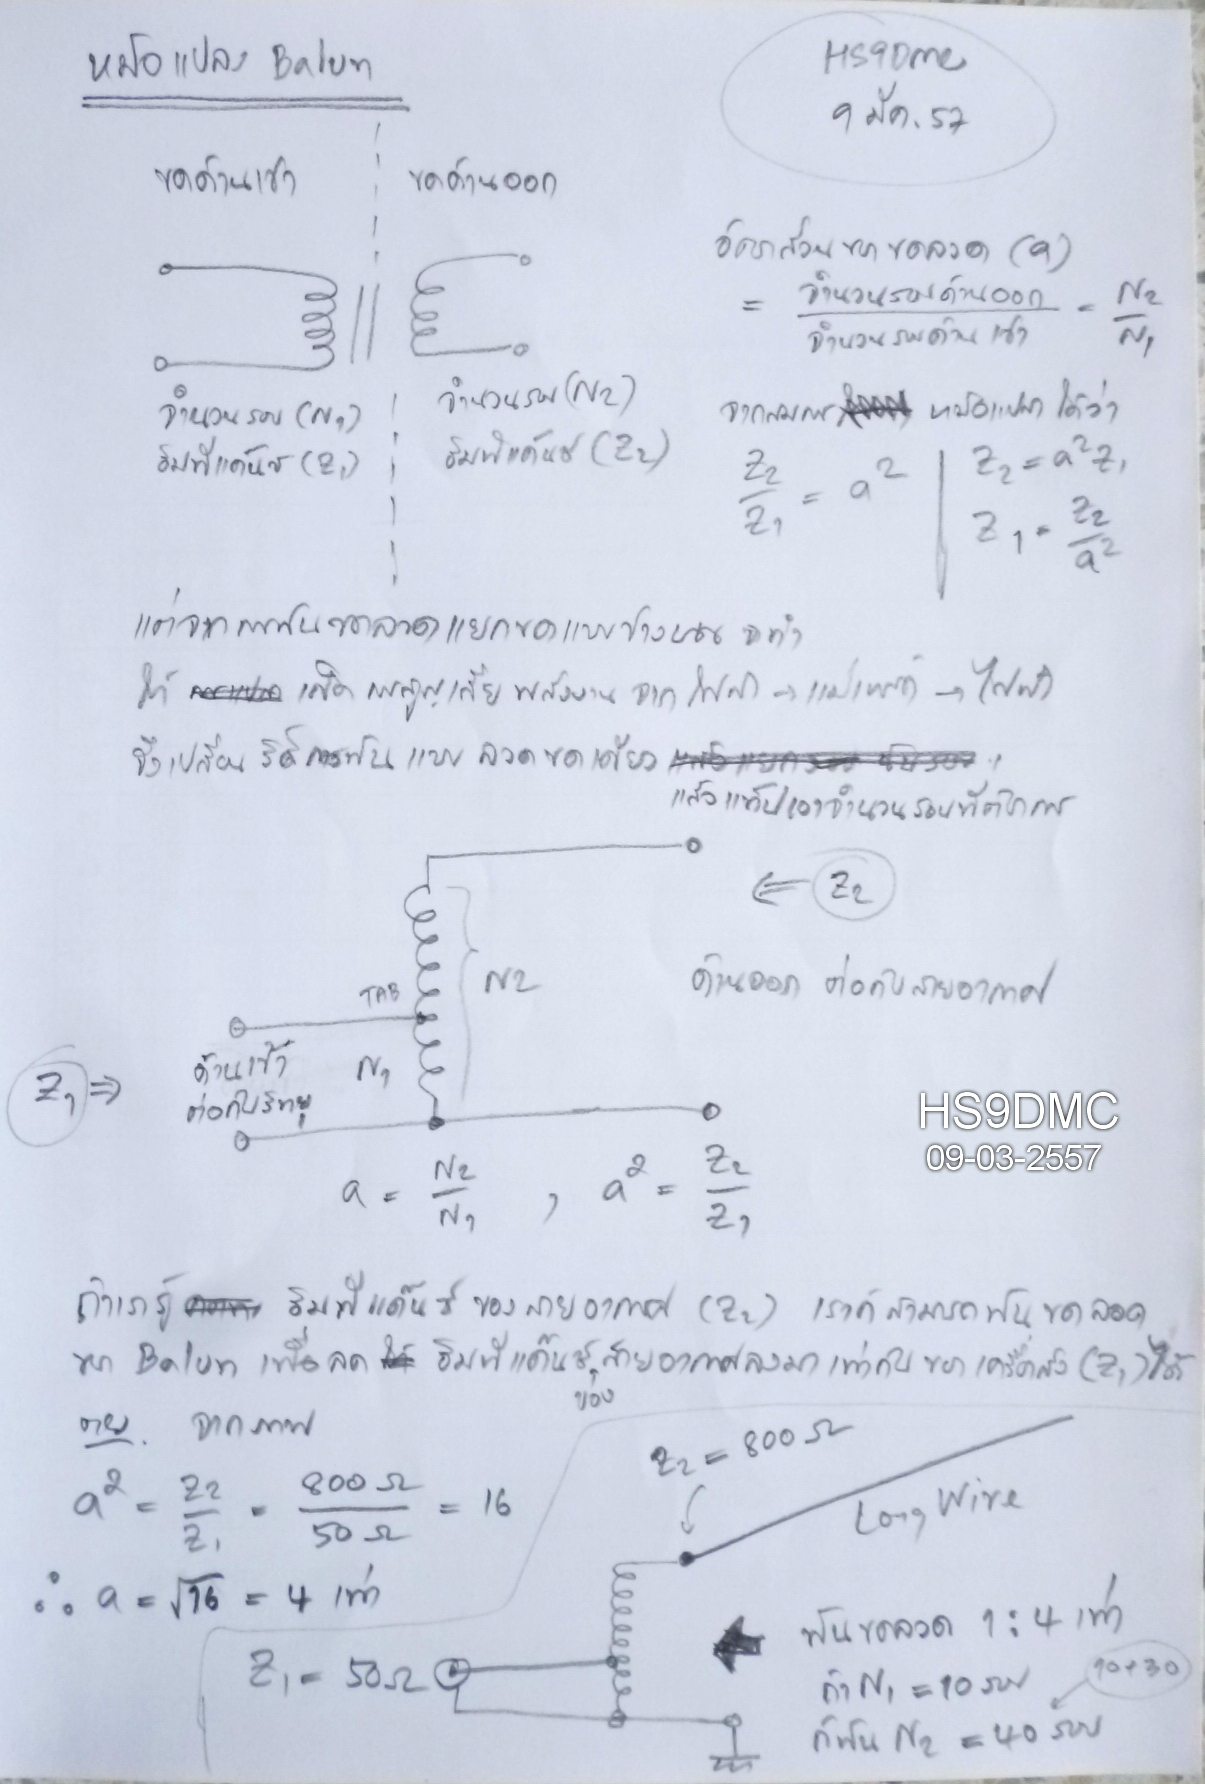 หม้อแปลง Balun
HS9DMC
9 มีค. 57
ขดด้านเข้า
ขดด้านออก
จำนวนรอบ (N1)
อิมพีแด๊นซ์ (Z1)
จำนวนรอบ (N2)
อิมพีแด๊นซ์ (Z2)
อัตราส่วนของขดลวด (a)
= จำนวนรอบด้านออก / จำนวนรอบด้านเข้า = N2/N1
จากสมการ หม้อแปลง ได้ว่า
Z2/Z1 = a²
Z2 = a²Z1
Z1 = Z2/a²
แต่จากการพันขดลวดแยกขดแบบข้างบน จะทำ
ให้ เกิด การสูญเสีย พลังงาน จาก ไฟฟ้า → แม่เหล็ก → ไฟฟ้า
จึงเปลี่ยน วิธีการพัน แบบ ลวดขดเดียว
แล้วแท๊ปเอาจำนวนรอบที่ต้องการ
⇐ Z2
N2
TAB
ด้านออก ต่อกับสายอากาศ
Z1 ⇒
ด้านเข้า
ต่อกับวิทยุ
N1
HS9DMC
09-03-2557
a = N2/N1 , a² = Z2/Z1
ถ้าเรารู้ อิมพีแด๊นซ์ ของสายอากาศ (Z2) เราก็สามารถพันขดลวด
ของ Balun เพื่อลด อิมพีแด๊นซ์ ของ สายอากาศลงมา เท่ากับ ของเครื่องส่ง (Z1) ได้
ตย. จากภาพ
a² = Z2/Z1 = 800 Ω / 50 Ω = 16
∴ a = √16 = 4 เท่า
Z2 = 800 Ω
Long Wire
Z1 = 50 Ω
พันขดลวด 1 : 4 เท่า
ถ้า N1 = 10 รอบ
10+30
ก็พัน N2 = 40 รอบ